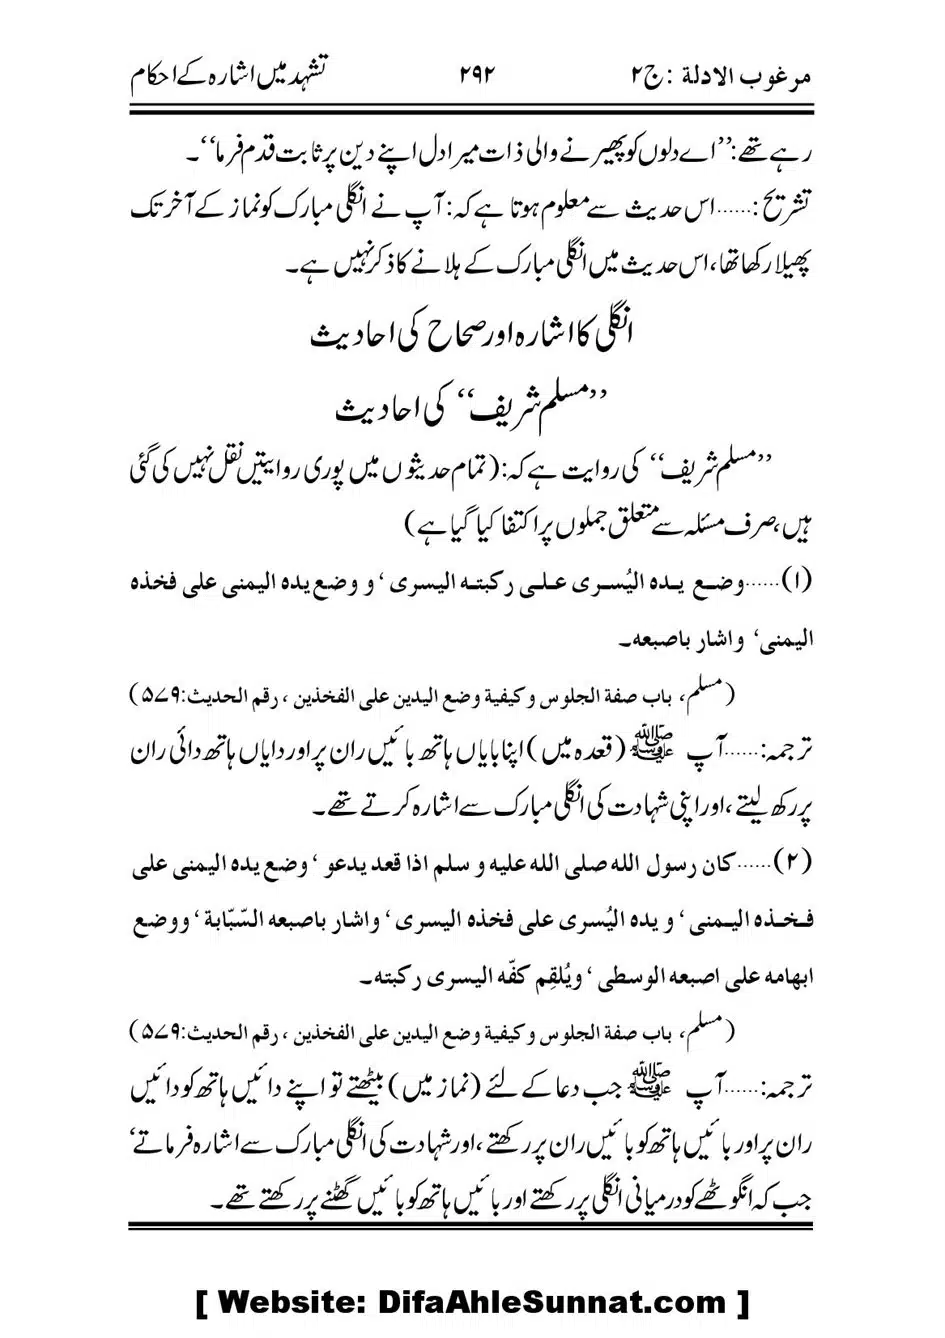 مرغوب الادلة :ج۲ ۲۹۲ تشہد میں اشارہ کے احکام
رہے تھے:’’اے دلوں کو پھیرنے والی ذات میرا دل اپنے دین پر ثابت قدم فرما‘‘۔
تشریح:......اس حدیث سے معلوم ہوتا ہے کہ: آپ نے انگلی مبارک کو نماز کے آخر تک
پھیلا رکھا تھا، اس حدیث میں انگلی مبارک کے ہلانے کا ذکر نہیں ہے۔
انگلی کا اشارہ اور صحاح کی احادیث
’’مسلم شریف‘‘ کی احادیث
’’مسلم شریف‘‘ کی روایت ہے کہ: (تمام حدیثوں میں پوری روایتیں نقل نہیں کی گئی
ہیں، صرف مسئلہ سے متعلق جملوں پر اکتفا کیا گیا ہے)
(۱)......وضع یده الیُسری علی رکبته الیسری ‘ و وضع یده الیمنی علی فخذه
الیمنی‘ واشار باصبعه۔
(مسلم، باب صفة الجلوس و کیفیة وضع الیدین علی الفخذین ، رقم الحدیث:۵۷۹)
ترجمہ:......آپ ﷺ (قعدہ میں) اپنا بایاں ہاتھ بائیں ران پر اور دایاں ہاتھ دائی ران
پر رکھ لیتے، اور اپنی شہادت کی انگلی مبارک سے اشارہ کرتے تھے۔
(۲)......کان رسول الله صلی الله علیه و سلم اذا قعد یدعو ‘ وضع یده الیمنی علی
فخذه الیمنی ‘ و یده الیُسری علی فخذه الیسری ‘ واشار باصبعه السّبّابة ‘ ووضع
ابهامه علی اصبعه الوسطی ‘ ویُلقِم کفّه الیسری رکبته۔
(مسلم، باب صفة الجلوس و کیفیة وضع الیدین علی الفخذین ، رقم الحدیث:۵۷۹)
ترجمہ:......آپ ﷺ جب دعا کے لئے (نماز میں) بیٹھتے تو اپنے دائیں ہاتھ کو دائیں
ران پر اور بائیں ہاتھ کو بائیں ران پر رکھتے، اور شہادت کی انگلی مبارک سے اشارہ فرماتے‘
جب کہ انگوٹھے کو درمیانی انگلی پر رکھتے اور بائیں ہاتھ کو بائیں گھٹنے پر رکھتے تھے۔
[ Website: DifaAhleSunnat.com ]